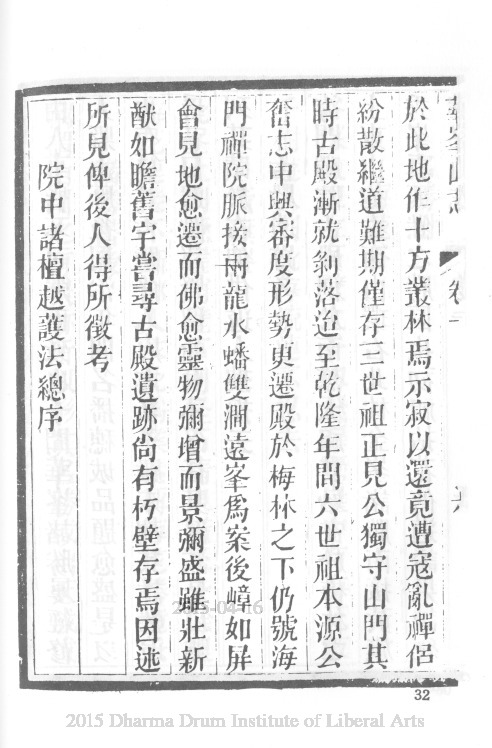 於此地作十方叢林焉示寂以還竟遭寇亂禪侶
紛散繼道難期僅存三世祖正見公獨守山門其
時古殿漸就剝落迨至乾隆年間六世祖本源公
奮志中興審度形勢更遷殿於梅林之下仍號海
門禪院脈接兩龍水蟠雙澗遠峯爲案後嶂如屏
會見地愈遷而佛愈靈物彌增而景彌盛雖壯新
猷如瞻舊宇嘗尋古殿遺跡尙有朽壁存焉因述
所見俾後人得所徵考
院中諸檀越護法總序
32
2015 Dharma Drum Institute of Liberal Arts